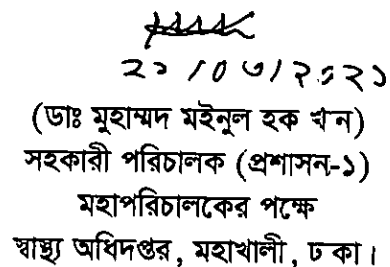 ২১/০৩/২০২১
(ডাঃ মুহাম্মদ মইনুল হক খ ন)
সহকারী পরিচালক (প্রশাসন-১)
মহাপরিচালকের পক্ষে
স্বাস্থ্য অধিদপ্তর, মহাখালী, ঢ কা।